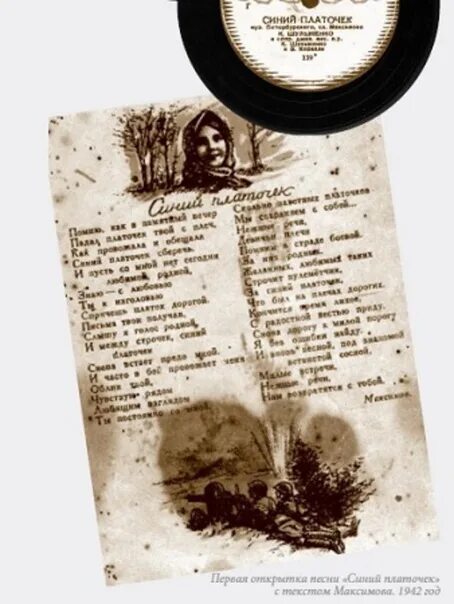 СИНИЙ ПЛАТОЧЕК
муз. Петербургского, сл. Максимова
К. ШУЛЬЖЕНКО
в сопр. джаз анс. п.у.
К. Шульженко
и В. Коралли
139
Синий платочек
Помню, как в памятный вечер
Падал платочек твой с плеч,
Как провожала и обещала
Синий платочек сберечь.
И пусть со мной нет сегодня
любимой, родной,
Знаю — с любовью
Ты к изголовью
Спрячешь платок дорогой.
Письма твои получая,
Слышу я голос родной,
И между строчек, синий
платочек
Снова встает предо мной.
И часто в бой провожает меня
Облик твой,
Чувствую рядом
Любящим взглядом
Ты постоянно со мной.
Сколько заветных платочков
Мы сохраняем с собой...
Нежные речи,
Девичьи плечи
Помним в страде боевой.
За них родных,
Желанных, любимых таких
Строчит пулеметчик,
За синий платочек,
Что был на плечах дорогих.
Кончится время лихое,
С радостной вестью приду.
Снова дорогу к милой порогу
Я без ошибки найду.
И вновь весной, под знакомой
ветвистой сосной,
Милые встречи,
Нежные речи,
Нам возвратятся с тобой.
Максимов.
Первая открытка песни «Синий платочек»
с текстом Максимова. 1942 год